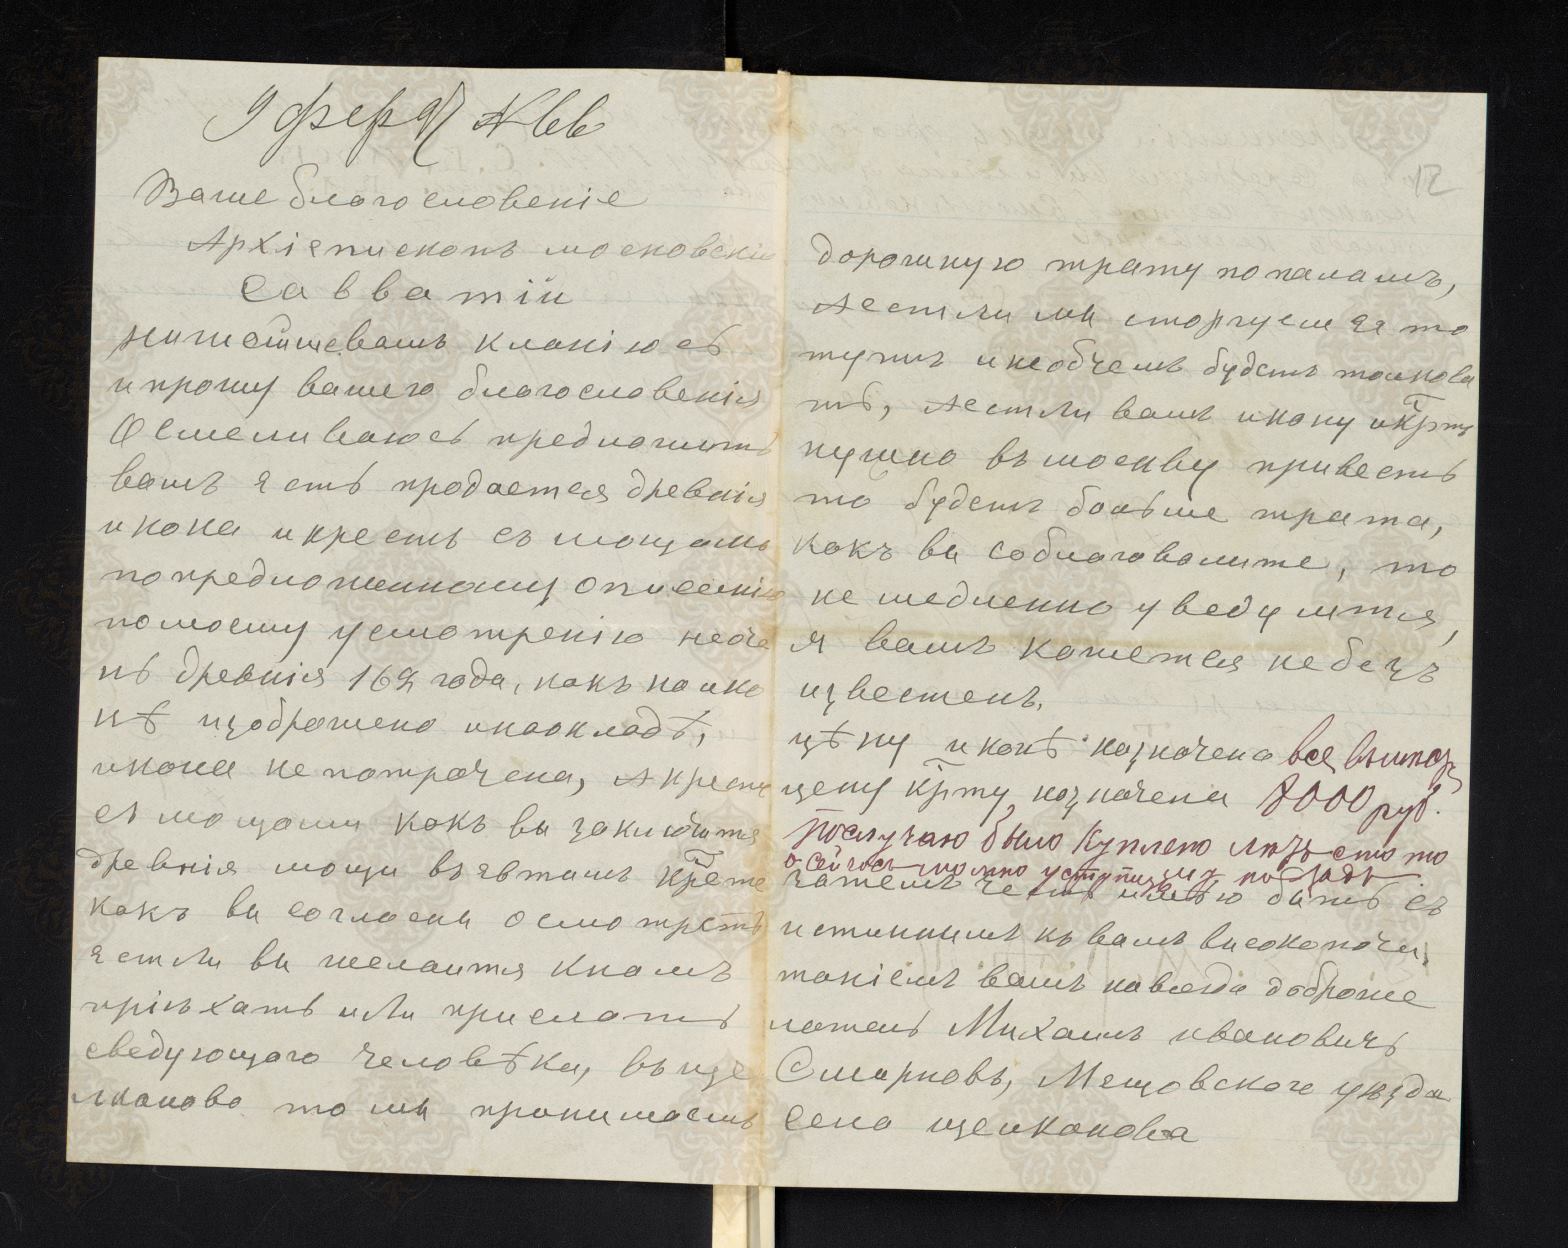 Ваше благословеніе
Архіепископъ московскій
Савватій
нитейше вамъ кланіюсь
и прошу вашего благословенія
Осмеливаюсь предложить
вамъ ясть продается древнія
икона и крестъ съ мощами
по предложенному описанію
по моему усмотренію неоче
нь древнія 162 года, какъ на ико
нѣ изображено инаокладѣ,
икона не потрачена, А крестъ
съ мощами какъ вы заключитя
древнія мощи въ явтомъ кр҃те
какъ вы согласны осмотреть
ястли вы желаитя к намъ
пріѣхать или прислать
сведующаго человѣка, въ ще
лканово то мы принимаемъ
12
дорожную трату пополамъ,
Аестли мы сторгуемъся то
тутъ инеобчемъ будетъ толкова
ть, Аестли вамъ икону и кр҃тъ
нужно въ москву привесть
то будетъ больше трата,
какъ вы соблаговалите, то
не медленно уведумтя,
я вамъ кажется небезъ
известенъ.
цѣну иконѣ назначена
цену кр҃ту назначена 8000 руб.
по случаю было куплено
а сейчасъ можно уступить
затемъ честь имѣю быть съ
истиннымъ къ вамъ високопочи,
таніемъ вамъ навсегда доброже
латель Михаилъ ивановичъ
Смирновъ, Мещовского уѣзда
села щелканова